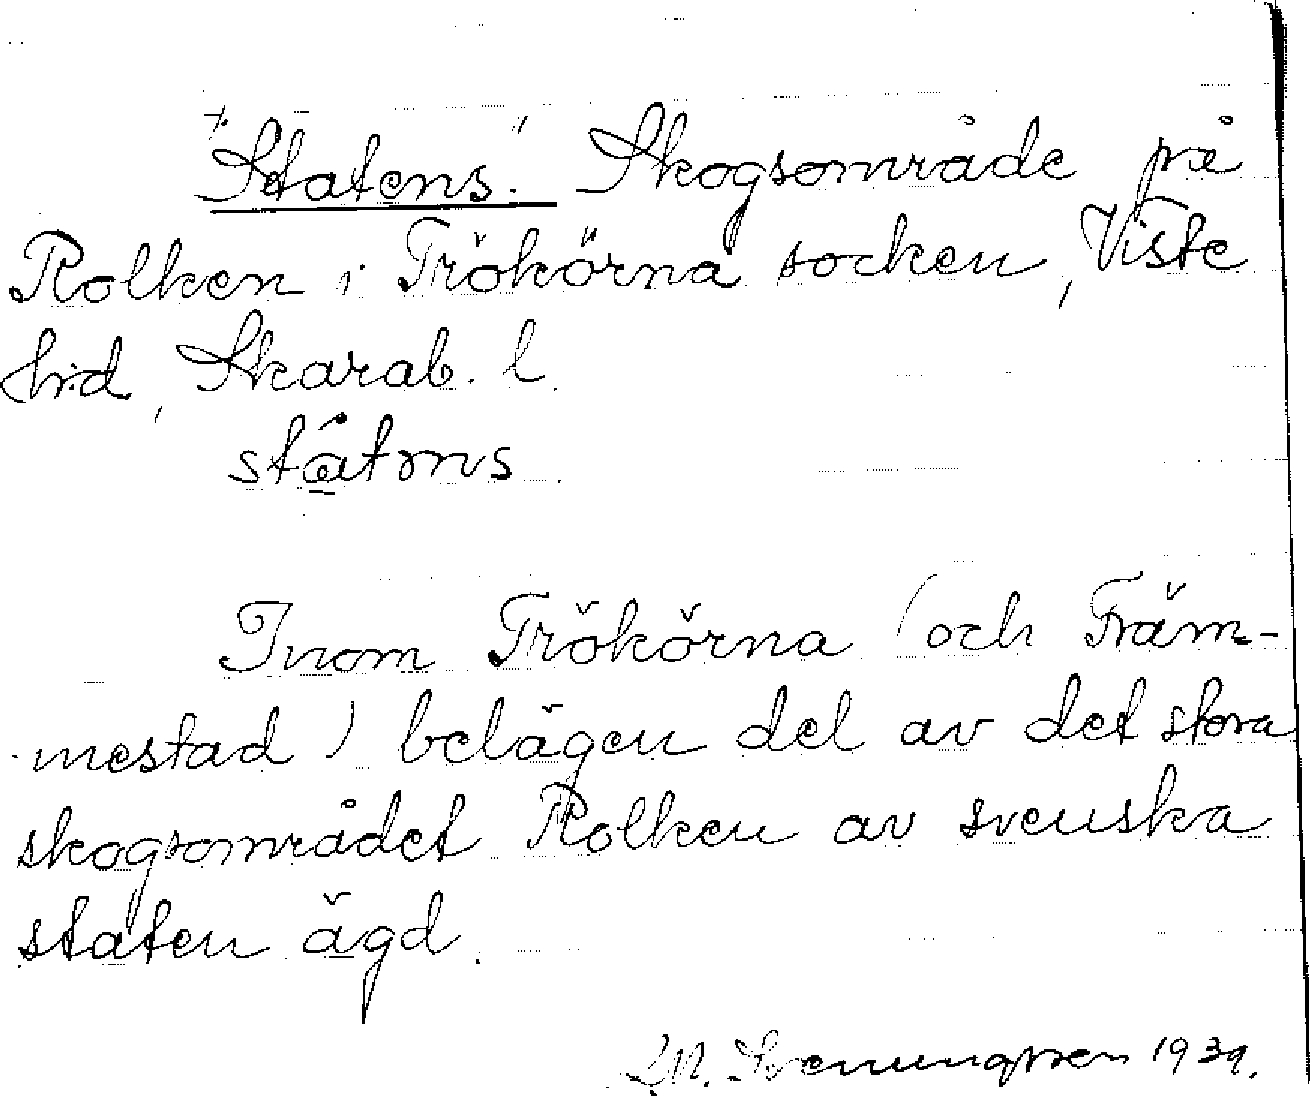 "Statens." Skogsområde på
Rolken i Trökörna socken, Viste
hrd, Skarab. l.
Inom Trökörna (och Främ-
mestad) belägen del av det stora
skogsområdet Rolken av svenska
staten ägd.
Svenungsson 1939.